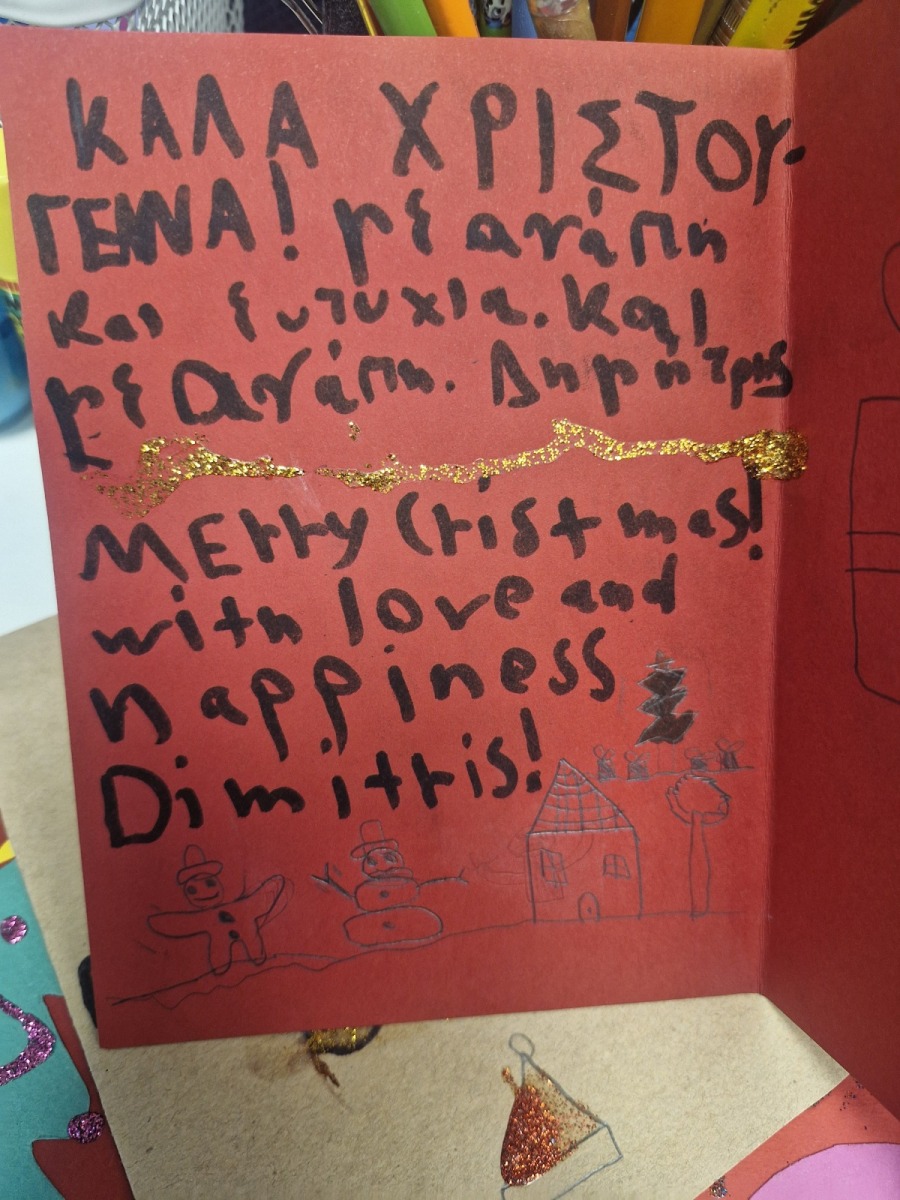 ΚΑΛΑ ΧΡΙΣΤΟΥ-
ΓΕΝΝΑ! με αγάπη
και ευτυχια. Και
με αγάπη. Δημήτρης
MErry Cristmas!
with love and
happiness
Dimitris!